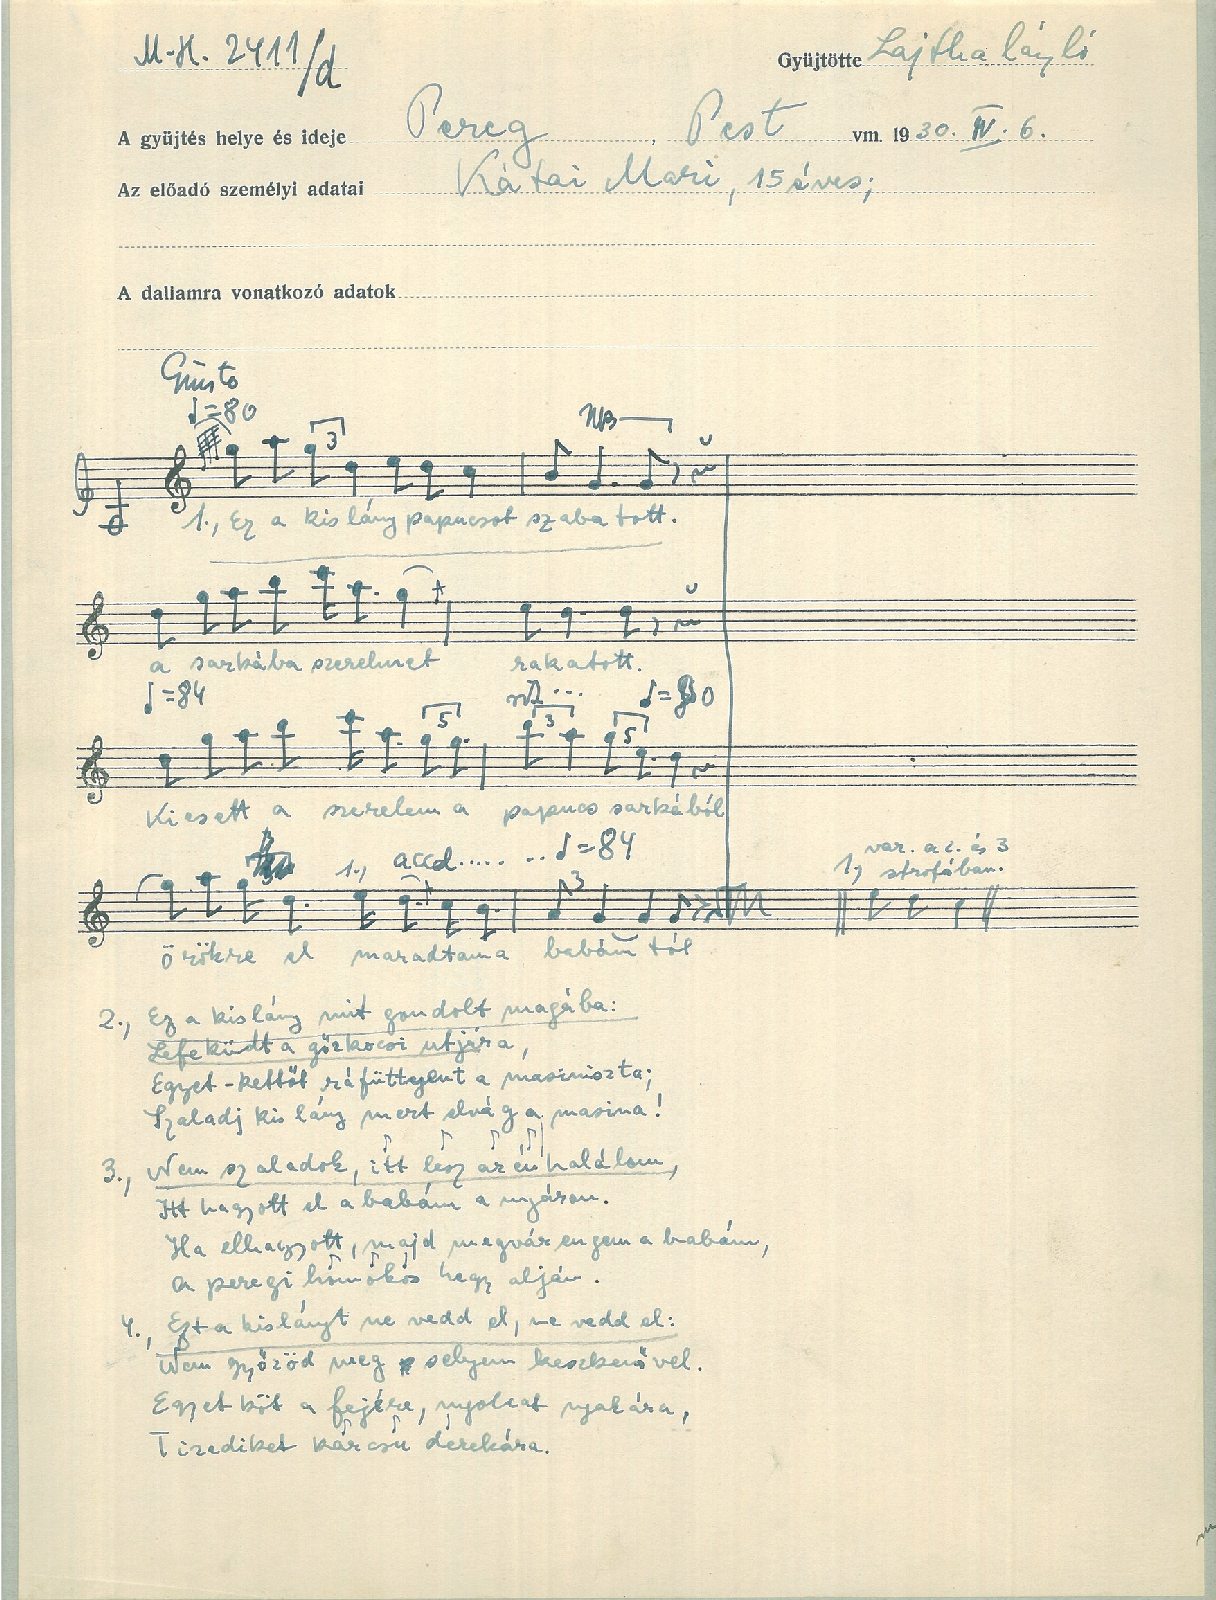 M-H. 2411/d
Gyüjtötte Lajtha László
A gyüjtés helye és ideje Pereg, Pest vm. 1930. IV. 6.
Az előadó személyi adatai Kátai Mari, 15 éves;
A dallamra vonatkozó adatok
Giusto
♩=80
3
NB
1., Ez a kislány papucsot szabatott.
a sarkába szerelmet rakatott.
♩=84
♩=80
5 3 5
Kiesett a szerelem a papucs sarkából
1., accel..... ..♩=84
1, var. a 2. és 3
strofában.
3
örökre el maradtam a babámtól
2., Ez a kislány mit gondolt magába:
Lefeküdt a gőzkocsi utjára,
Egyet-kettőt ráfüttyent a masiniszta;
Szaladj kislány mert elvág a masina!
3., Nem szaladok, itt lesz az én halálom,
Itt hagyott el a babám a nyáron.
Ha elhagyott, majd megvár engem a babám,
a peregi homokos hegy alján.
4., Ezt a kislányt ne vedd el, ne vedd el:
Nem győzöd meg selyem keszkenővel.
Egyet köt a fejére, nyolcat nyakára,
Tizediket karcsu derekára.